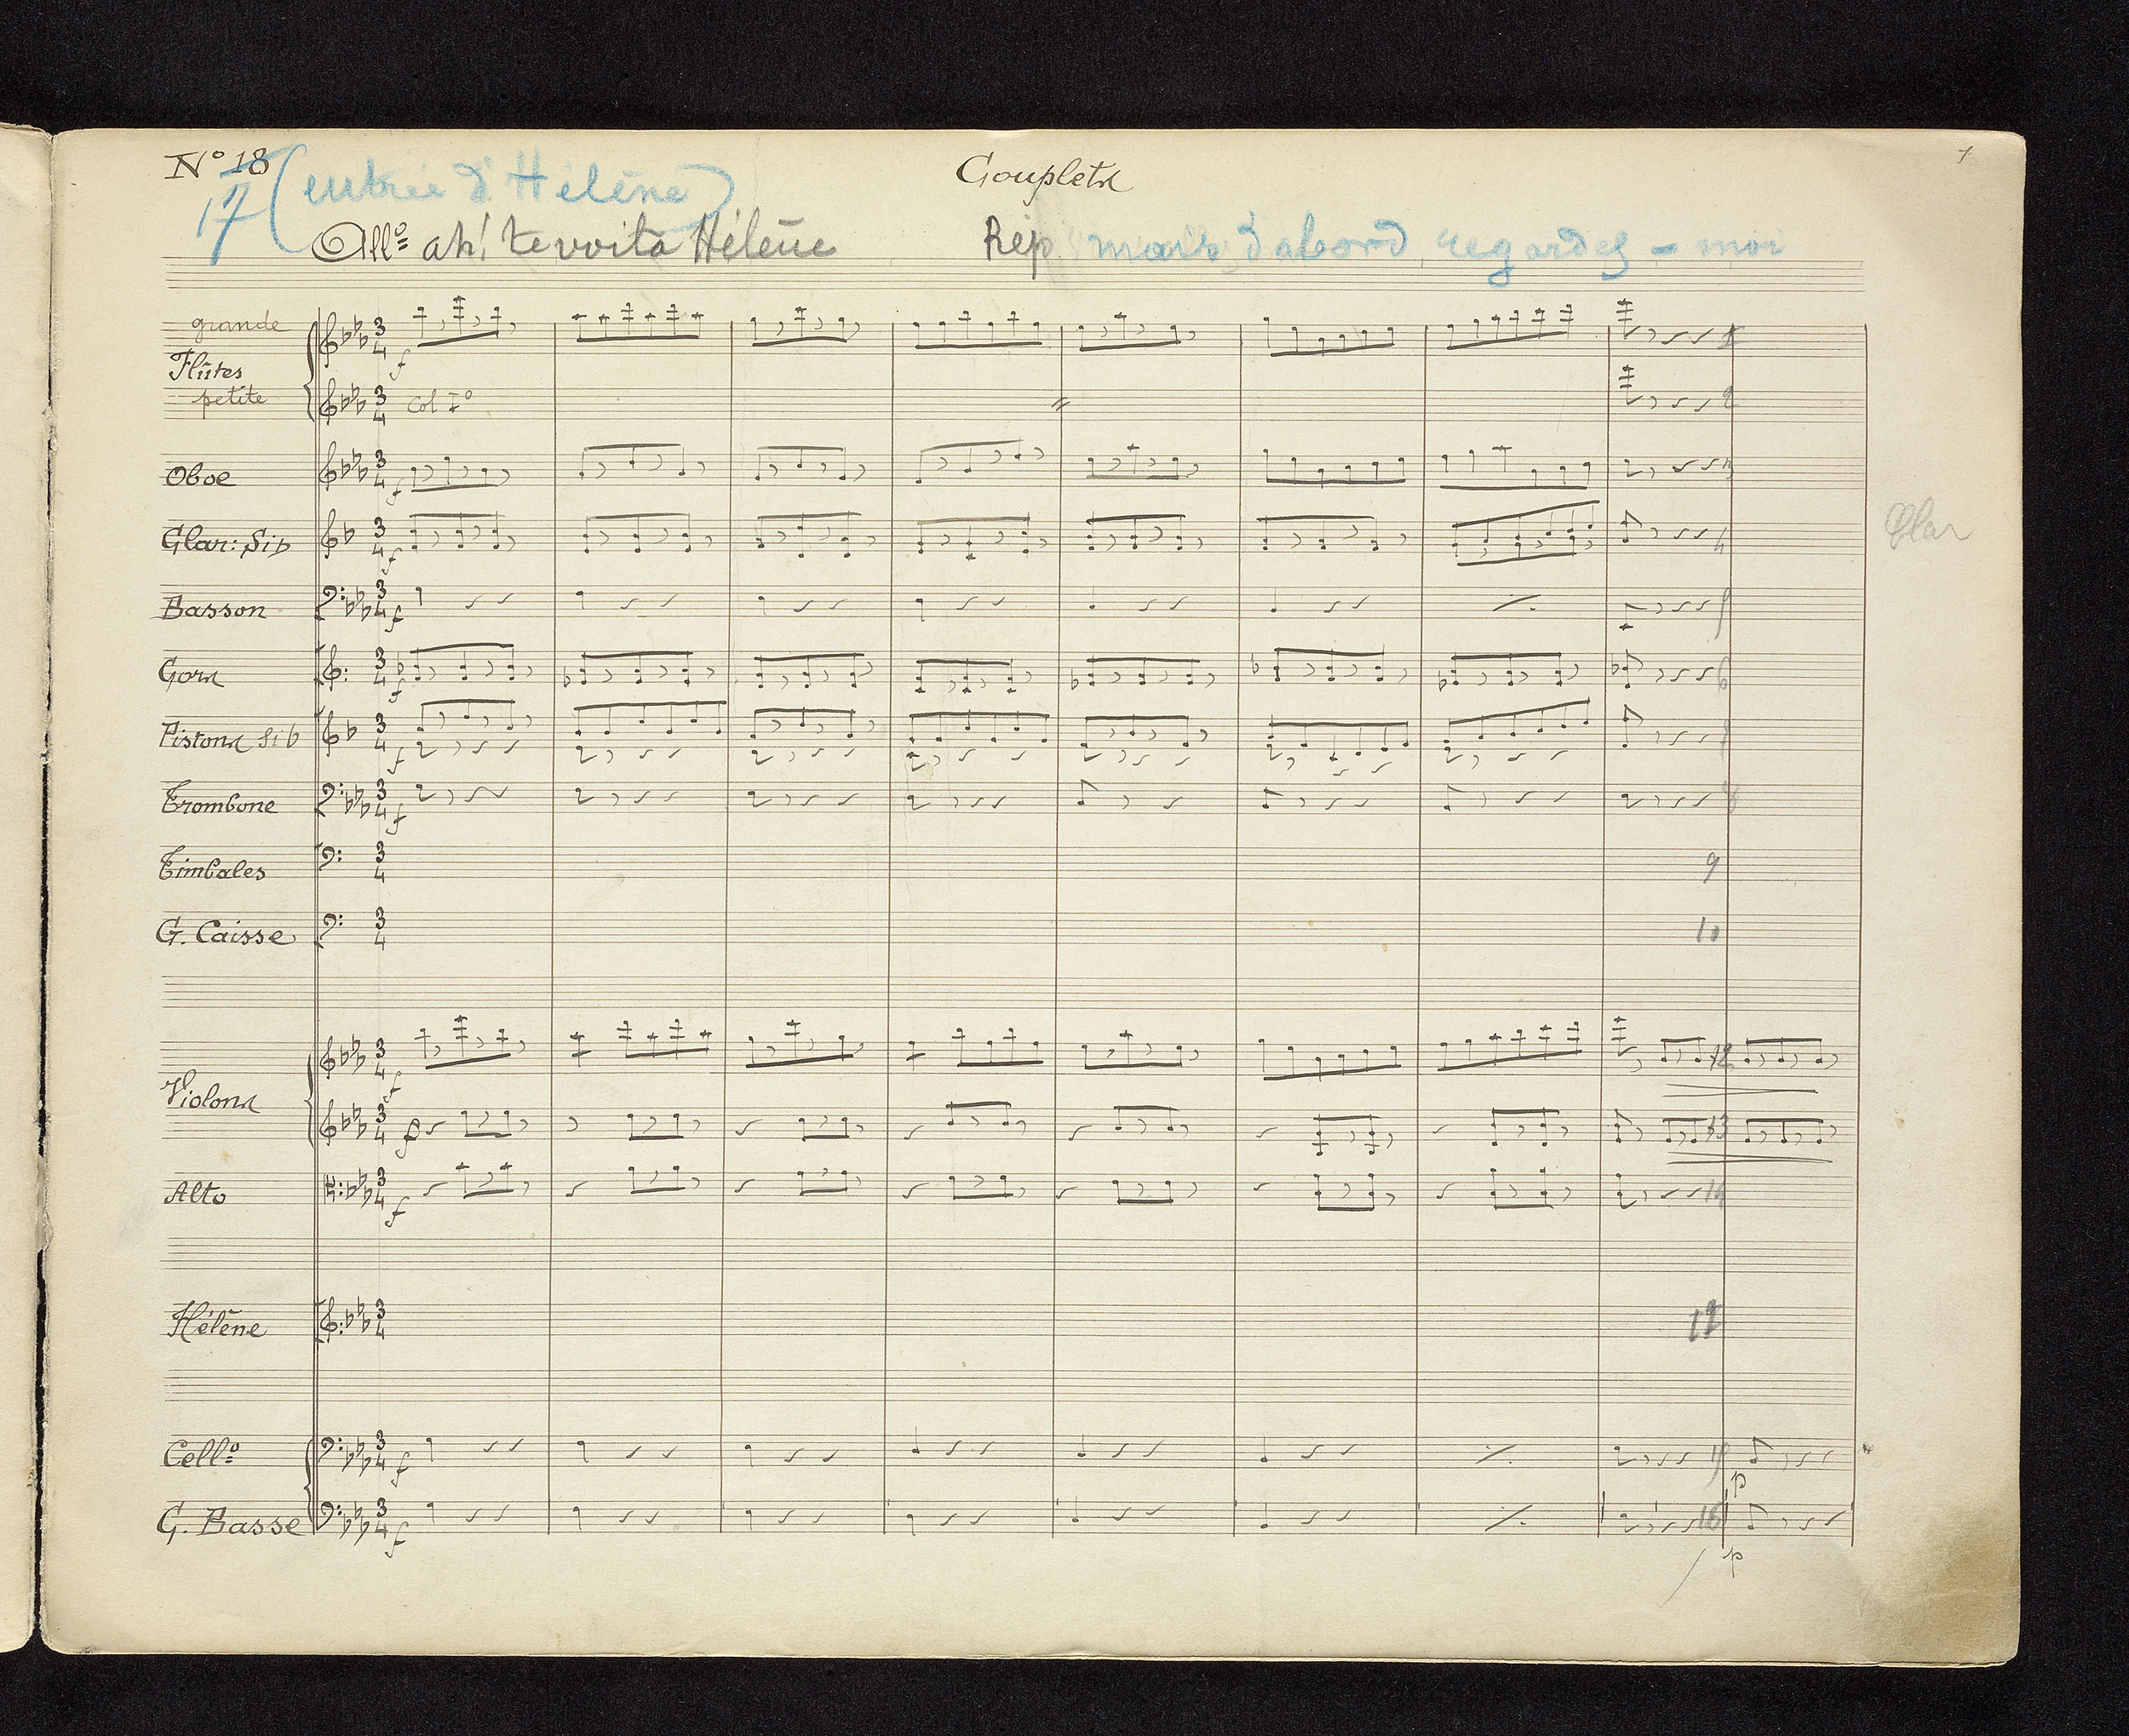 Nº 18
Couplets
1
17 (entrée d'Hélène)
Allº ah! te voilà Hélène
Rép. mais d'abord regardez-moi
grande
Flûtes
f
petite
Col Iº
2
Oboe
f
3
Clar: Si b
f
4
Clar
Basson
f
5
Cors
f
6
Pistons Si b
f
7
Trombone
f
8
Timbales
9
G. Caisse
10
f
12
Violons
13
Alto
f
14
Hélène
Cellº
f
15
p
C. Basse
f
16
p